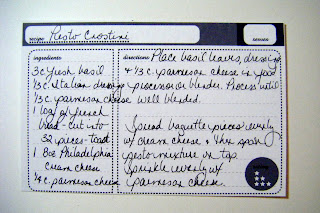 recipe: Pesto Crostini
serves:
ingredients:
3 c fresh basil
1/3 c. Italian dressing
1/3 c. parmesan cheese
1 loaf of french
bread - cut into
32 pieces - toast
1 8oz Philadelphia
cream cheese
1/4 c. parmesan cheese
directions: Place basil leaves, dressing
& 1/3 c. parmesan cheese in food
processor or blender. Process until
well blended.
Spread baguette pieces evenly
w/ cream cheese &
pesto mixture on top.
Sprinkle evenly w/
parmesan cheese.